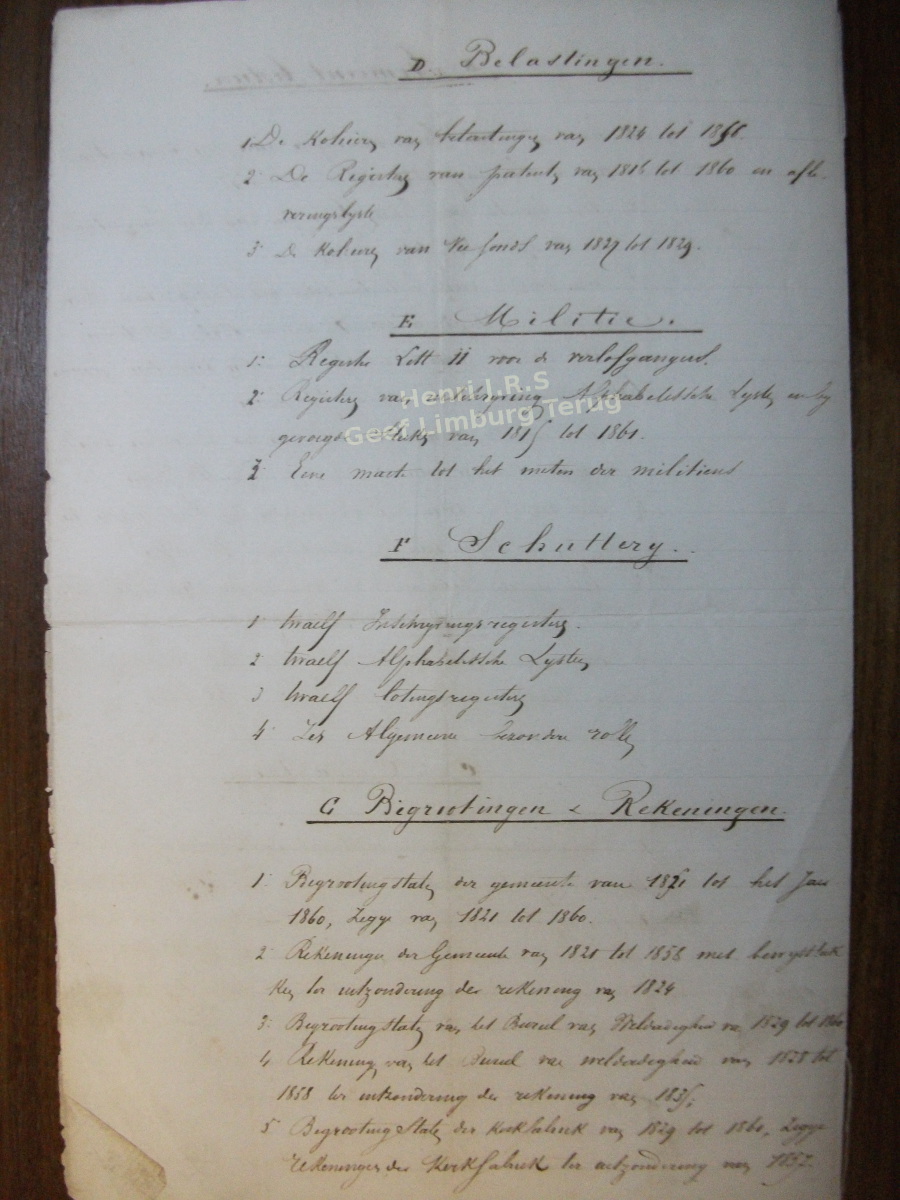 D Belastingen.
1. De Kohieren van belastingen van 1824 tot
2. De Registers van patenten van 1816 tot 1860 en afle-
veringslysten
3. De Kohieren van Vee fonds van 1827 tot 1829.
E Militie.
1. Register Lett voor de verlofgangers.
2. Registers van inschryving Alphabetissche Lysten en by
gevoegde stukken van 1815 tot 1861.
Henri I.R.S
Geef Limburg Terug
3. Eene maat tot het meten der militiens
F Schuttery.
1. twaelf Inschryvingsregisters.
2 twaelf Alphabetissche Lysten
3 twaelf lotingsregisters
4. Zes Algemeene bezondere rollen
G Begrootingen & Rekeningen.
1. Begrootingstaten der gemeente van 1821 tot het Jaar
1860, Zegge van 1821 tot 1860.
2. Rekeningen der Gemeente van 1821 tot 1858 met bewystuk
ken ter uitzondering der rekening van 1824
3. Begrootingstaten van het Bureel van Weldadigheid van 1829 tot 1860
4 Rekening van het Bureel van weldadigheid van 1828 tot
1858 ter uitzondering der rekening van
5 Begrooting Staten der Kerkfabriek van 1829 tot 1860, Zegge
rekeningen der Kerkfabriek ter uitzondering van 1857.